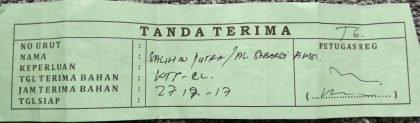 TANDA TERIMA
NO URUT :
NAMA : SALIHIN PUTRA /
KEPERLUAN : KTP-EL.
TGL TERIMA BAHAN : 27 12 - 17
JAM TERIMA BAHAN :
TGL SIAP :
PETUGAS REG
(....................)